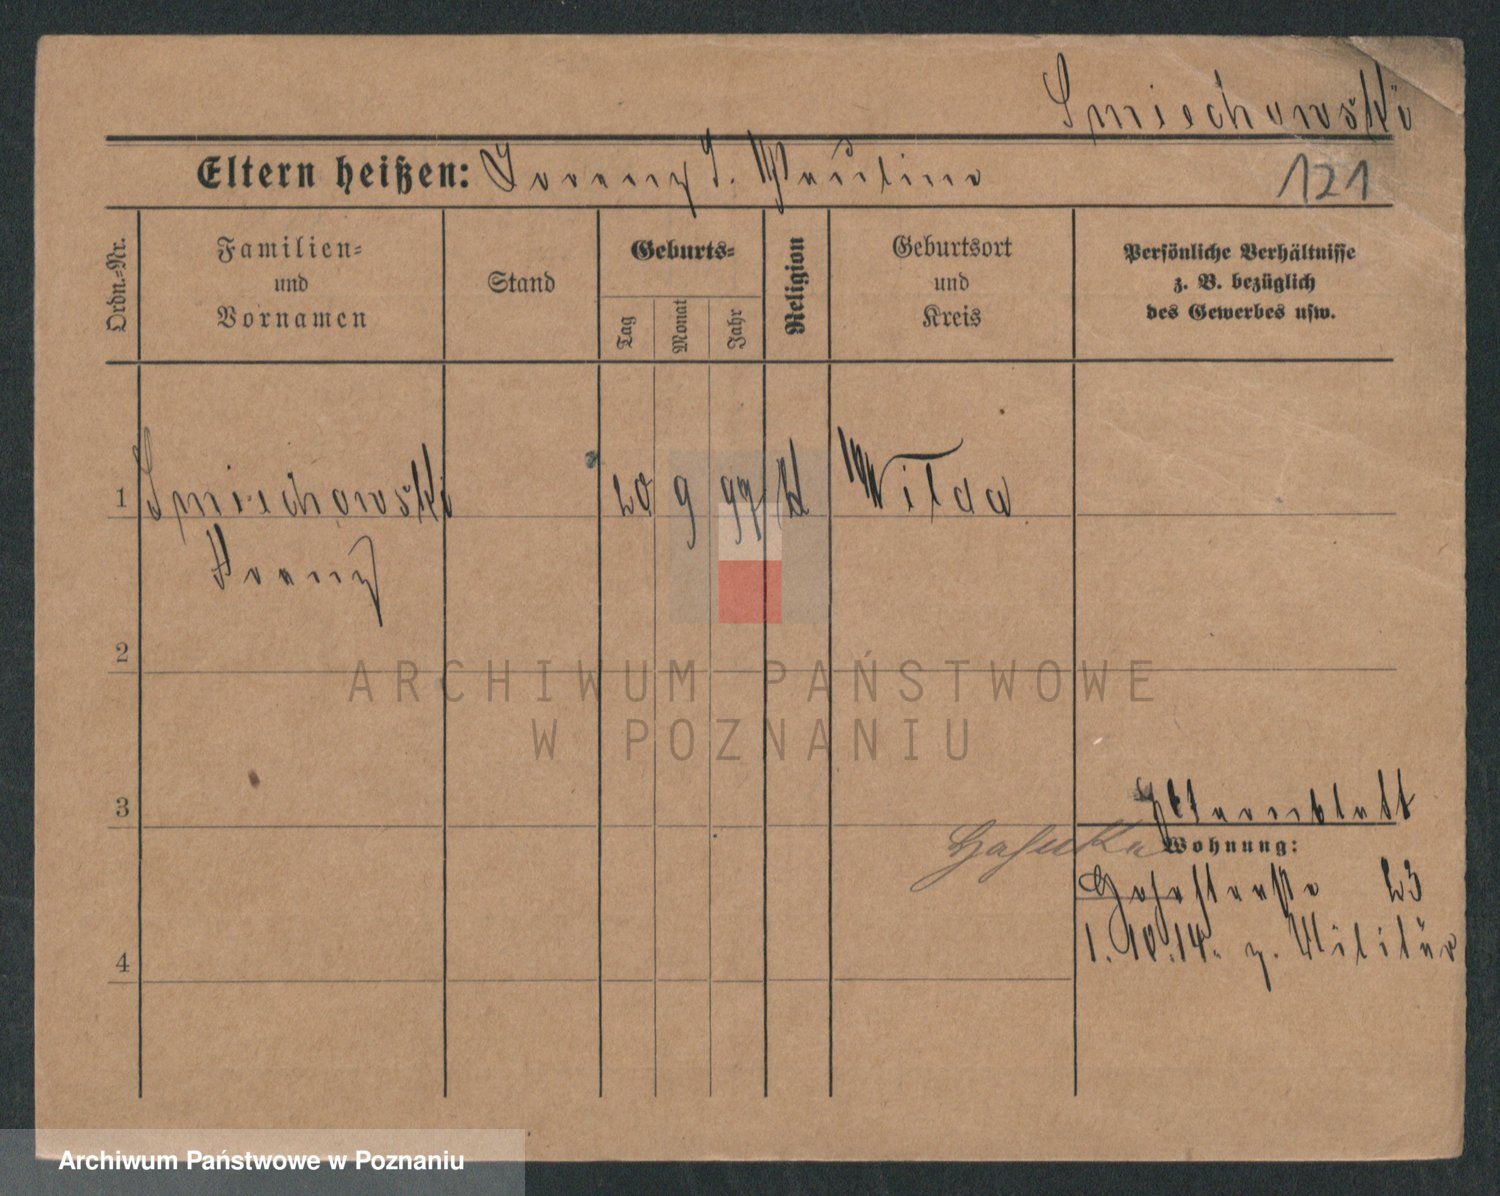 Smiechowski
Eltern heißen: Franz u. Pauline
121
Ordn.-Nr.
Familien-
und
Vornamen
Stand
Geburts-
Tag
Monat
Jahr
Religion
Geburtsort
und
Kreis
Persönliche Verhältnisse
z. B. bezüglich
des Gewerbes usw.
1 Smiechowski 20 9 97 k Wilda
Franz
2
ARCHIWUM PAŃSTWOWE
W POZNANIU
3
Wohnung:
23
4
1. 10. 14. z. Militär
Archiwum Państwowe w Poznaniu